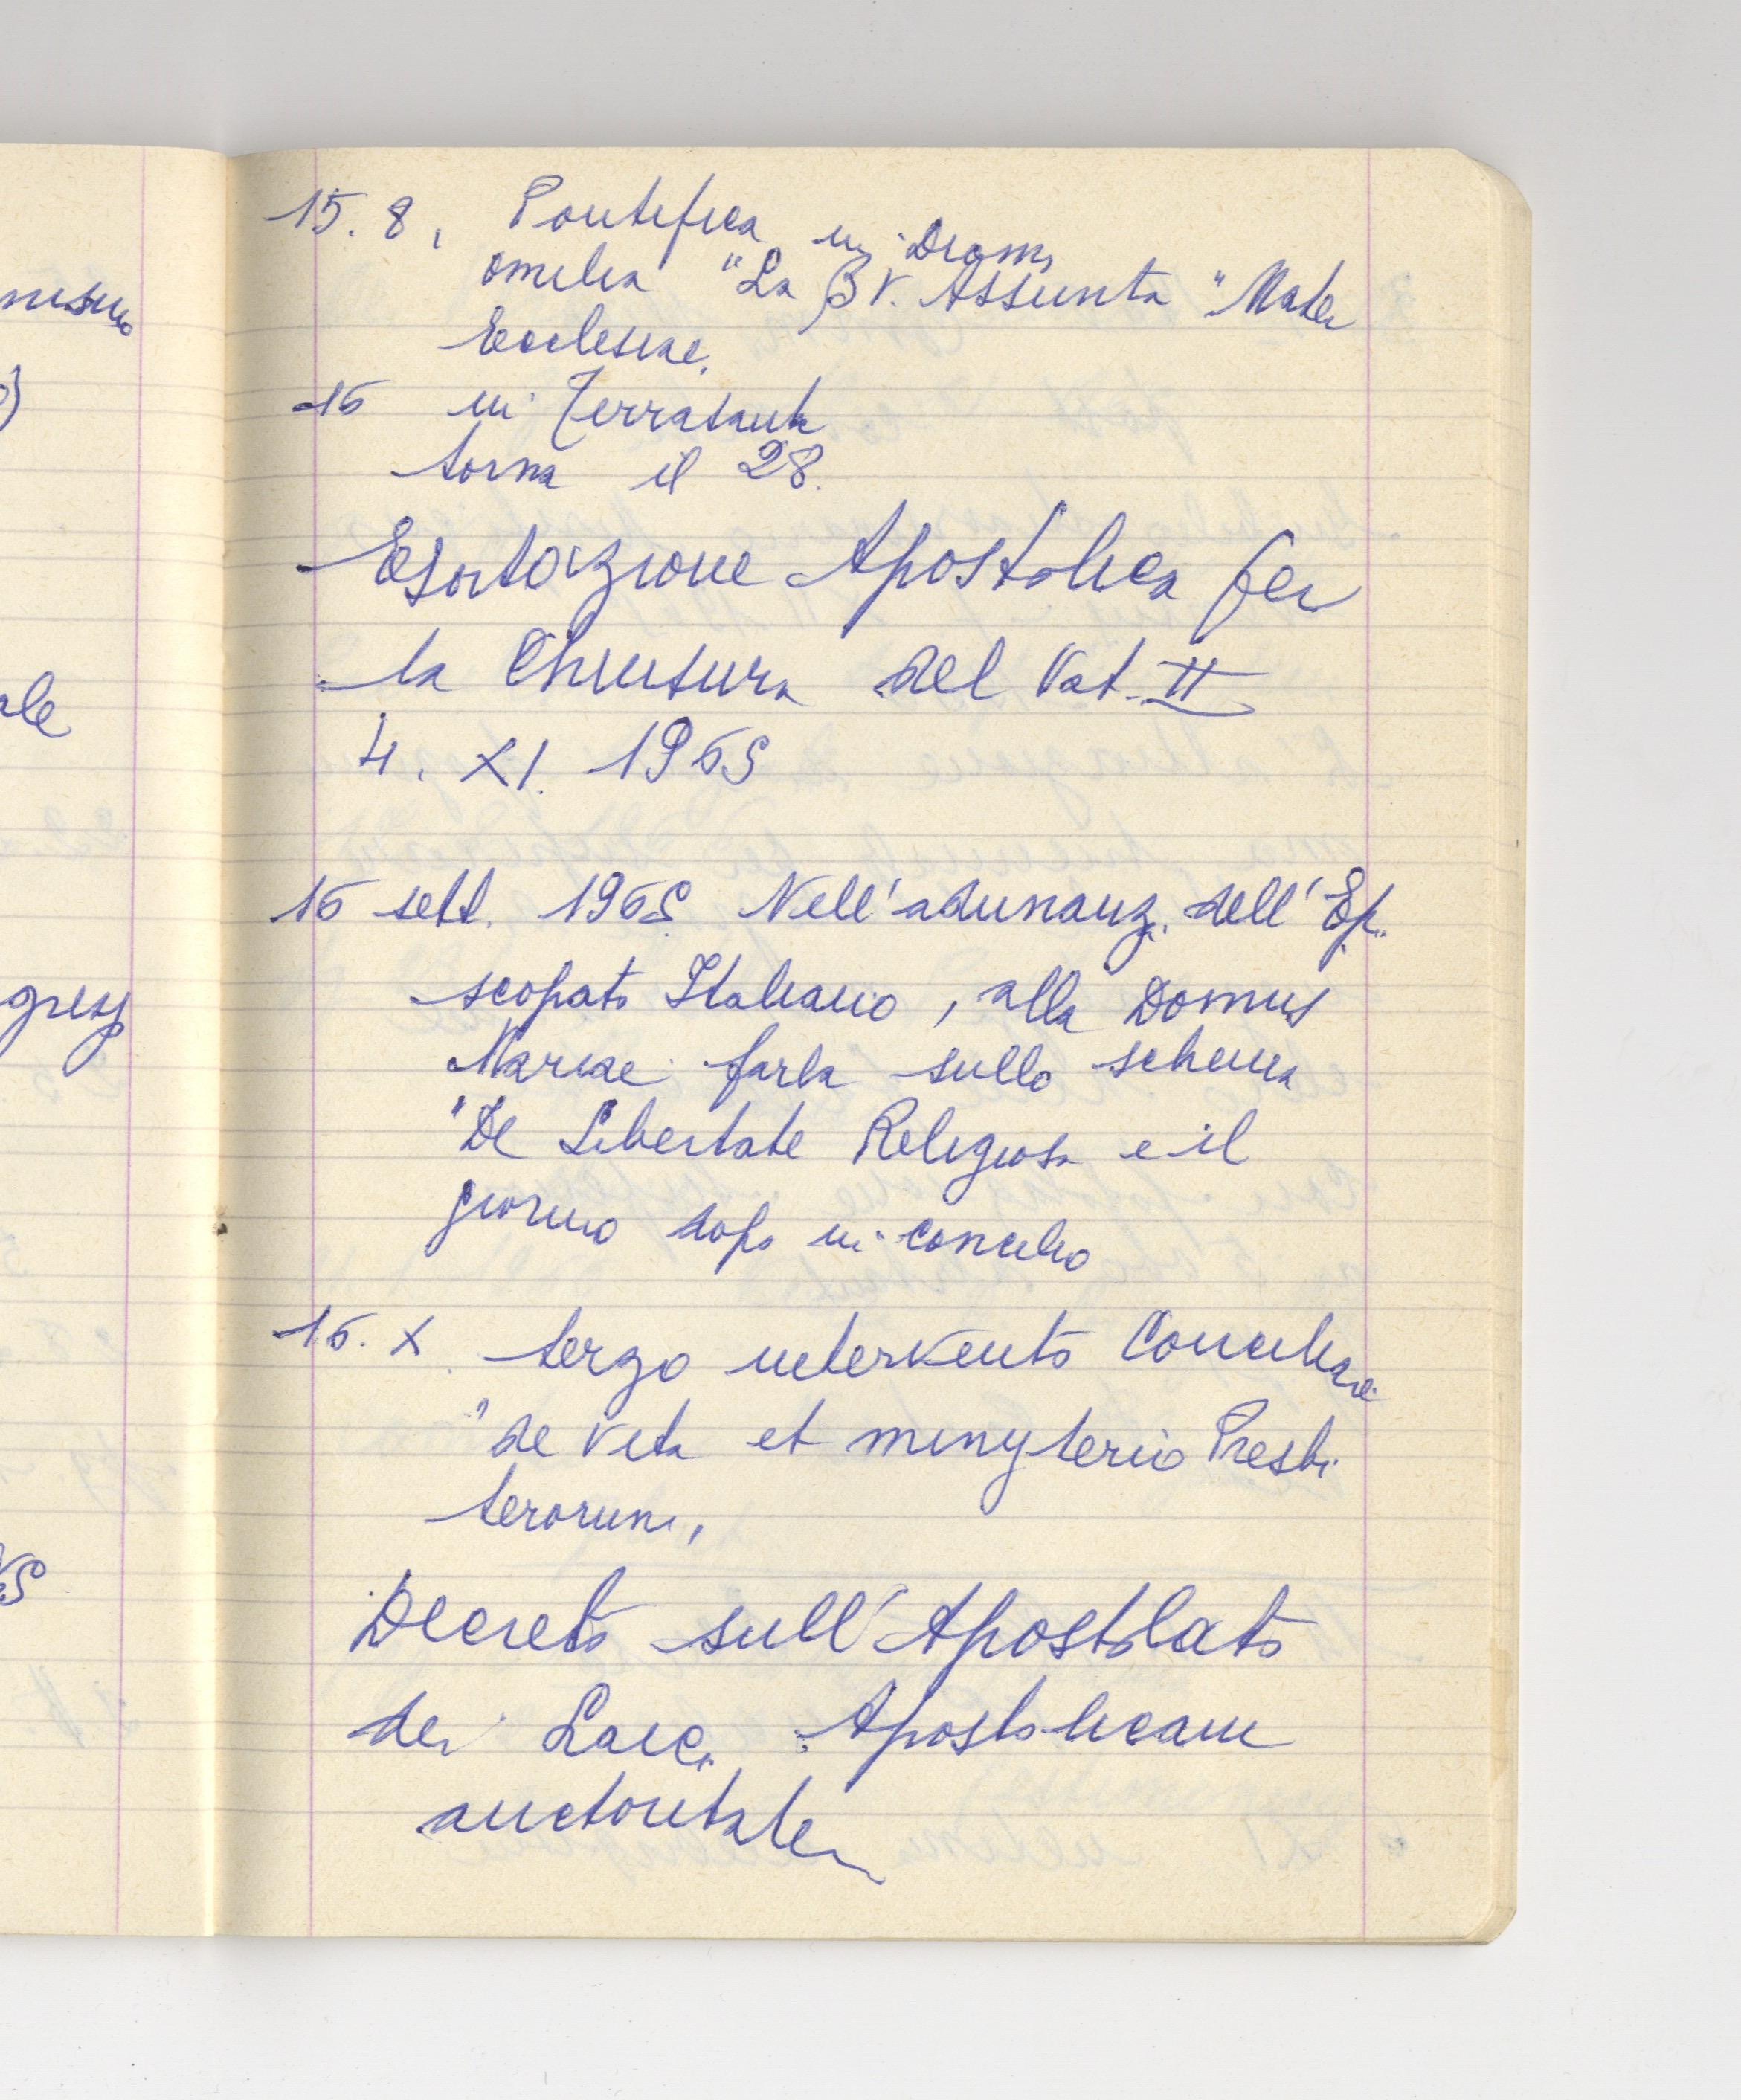 15.8, Pontifica in Duomo,
omelia "La B V. Assunta "Mater
Ecclesiae.
16 in Terrasanta
torna il 28.
Esortazione Apostolica per
la Chiusura del Vat. II
4. XI. 1965
16 sett. 1965 Nell'adunanz. dell'Epi
scopato Italiano, alla Domus
Mariae parla sullo schema
"De Libertate Religiosa e il
giorno dopo in concilio
16. X. terzo intervento Conciliare
"de vita et minysterio Presbi
terorum,
Decreto sull'Apostolato
dei Laici Apostolicam
auctoritatem
ale